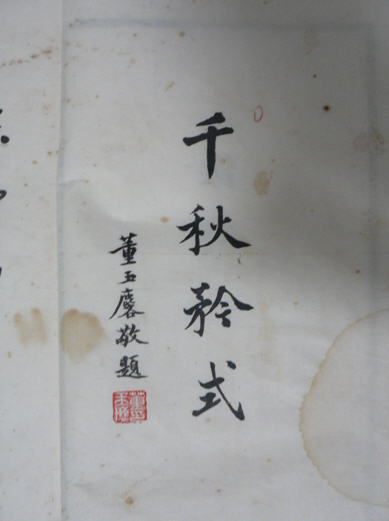 千秋矜式
董玉麐敬題